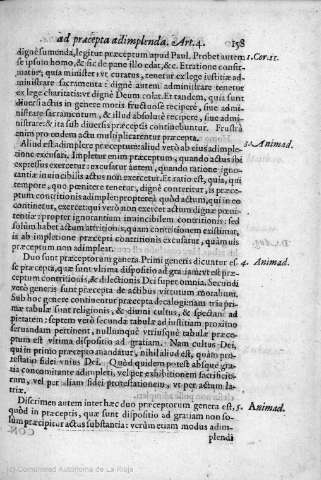 ad præcepta adimplenda. Art. 4. 158
dignè sumenda, legitur præceptum apud Paul. Probet autem 1. Cor. 11.
se ipsum homo, & sic de pane illo edat, &c. Et ratione confir-
matur; quia minister, vt curatus, tenetur ex lege iustitiæ ad-
ministrare sacramenta: dignè autem administrare tenetur
ex lege charitatis: vt dignè Deum colat. Et tandem, quia sunt
diuersi actus in genere moris fructuosè recipere, siue admi-
nistrare sacramentum, & illud absolutè recipere, siue admi-
nistrare: & ita sub diuersis præceptis continebuntur. Frustrà
enim pro eodem actu multiplicarentur præcepta.
Aliud est adimplere præceptum: aliud verò ab eius adimple- 3. Animad.
tione excusari. Impletur enim præceptum, quando actus ibi
expressus exercetur: excusatur autem, quando ratione igno-
rantiæ inuincibilis actus non exercetur. Et ratio est, quia, qui
tempore, quo pœnitere tenetur, dignè conteritur, is præce-
ptum contritionis adimplet: propterea quòd actum, qui in eo
continetur, exercet: qui verò non exercet actum dignæ pœni-
tentiæ: propter ignorantiam inuincibilem contritionis: sed
solùm habet actum attritionis, quam contritionem existimat,
is ab impletione præcepti contritionis excusatur, quamuis
præceptum non adimpleat.
Duo sunt præceptorum genera. Primi generis dicuntur es- 4. Animad.
se præcepta, quæ sunt vltima dispositio ad gratiam: vt est præ-
ceptum contritionis, & dilectionis Dei super omnia. Secundi
verò generis sunt præcepta de actibus virtutum moralium.
Sub hoc genere continentur præcepta decaloginam tria pri-
mæ tabulæ sunt religionis, & diuini cultus, & spectant ad
pietatem: septem verò secundæ tabulæ ad iustitiam proximo
seruandam pertinent, nullumque vtriusque tabulæ præce-
ptum est vltima dispositio ad gratiam. Nam cultus Dei,
qui in primo præcepto mandatur, nihil aliud est, quàm pro-
testatio fidei vnius Dei. Quòd quidem potest absque gra-
tia concomitante adimpleri, vel per exhibitionem sacrificio-
rum, vel per aliam fidei protestationem, vt per actum la-
triæ.
Discrimen autem inter hæc duo præceptorum genera est, 5. Animad.
quòd in præceptis, quæ sunt dispositio ad gratiam non so-
lùm præcipitur actus substantia: verùm etiam modus adim-
plendi
(c) Comunidad Autónoma de La Rioja